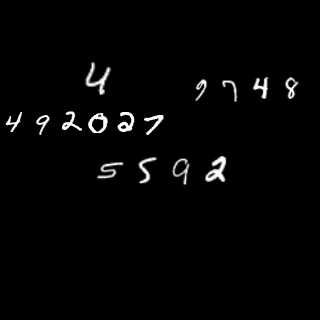 4
9748
492027
5592